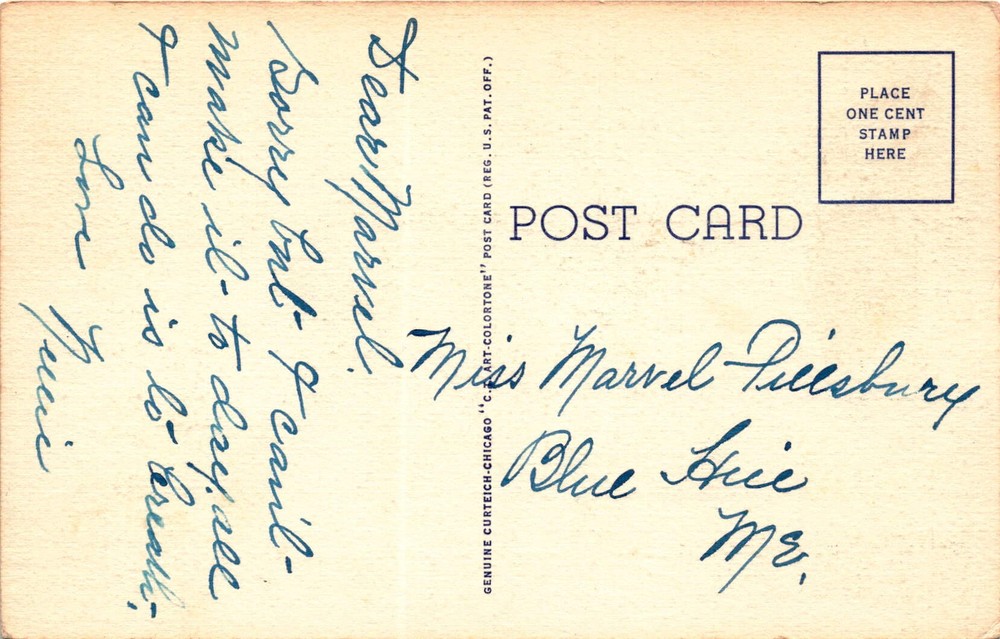 Dear Marvel.
Sorry but I can't
make it to day, all
I can do is to breath.
Love
POST CARD
PLACE
ONE CENT
STAMP
HERE
GENUINE CURTEICH-CHICAGO "C.T. ART-COLORTONE" POST CARD (REG. U.S. PAT. OFF.)
Miss Marvel Pillsbury
Blue Hill
Me.